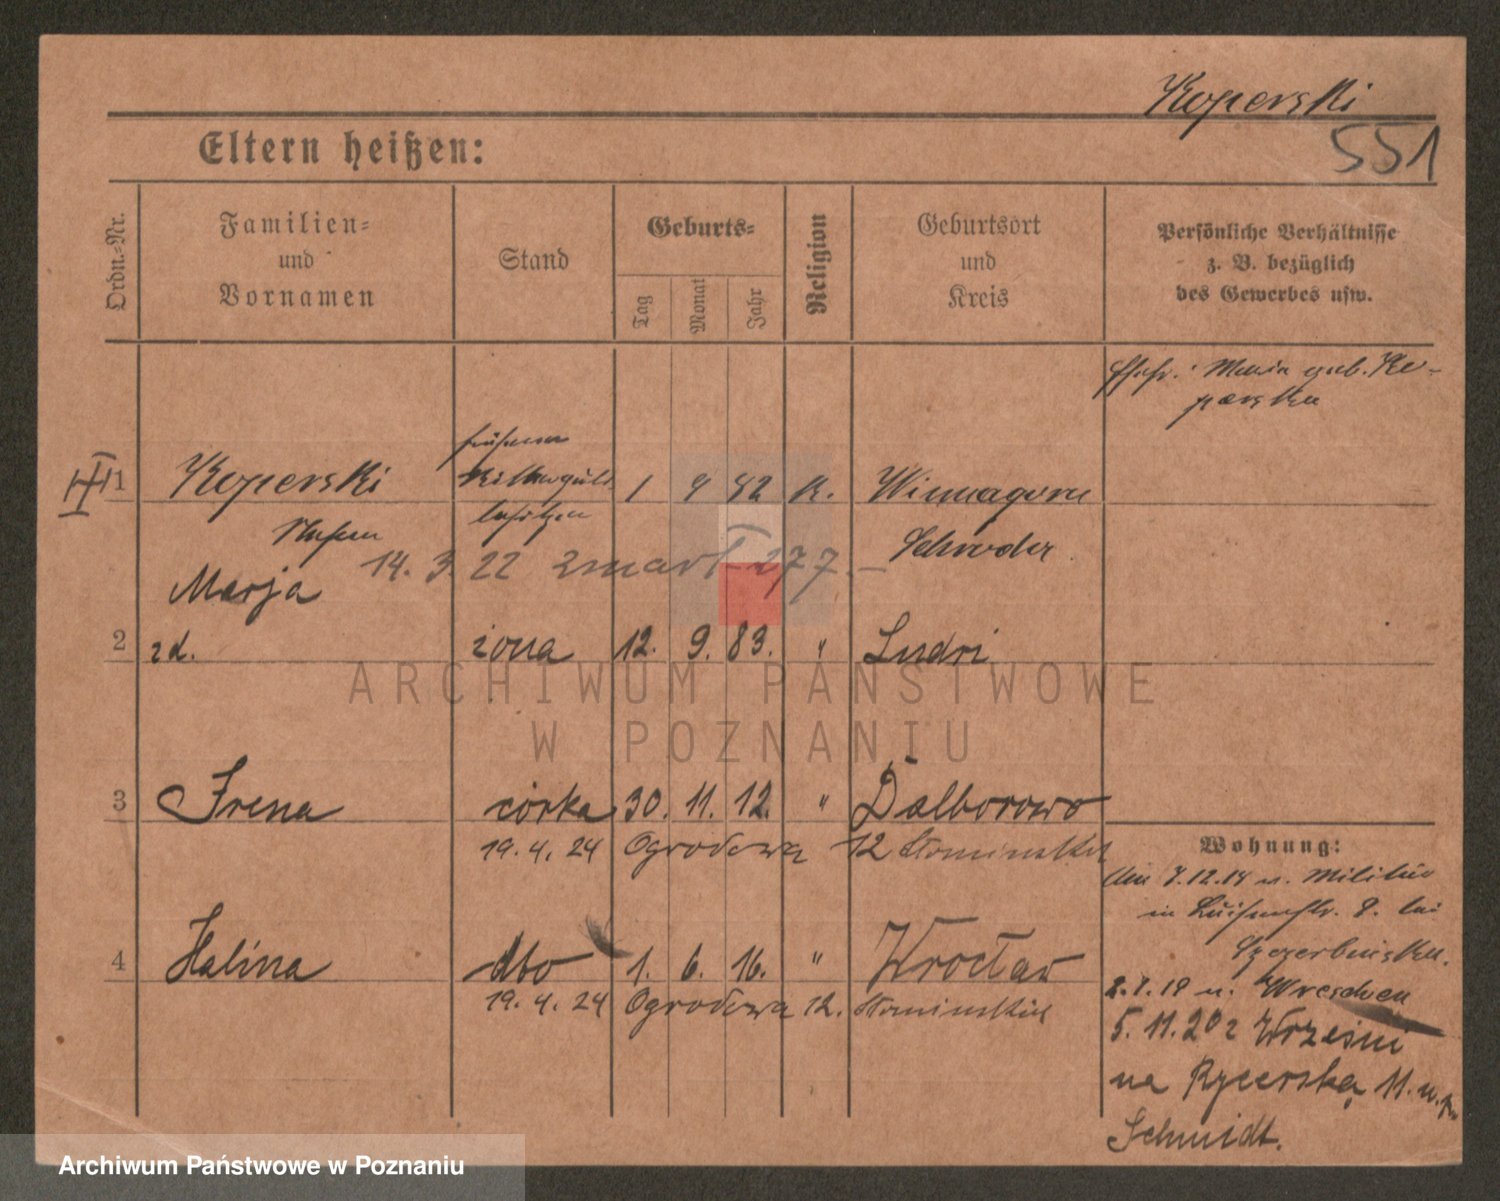 Koperski
551
Eltern heißen:
Ordn.-Nr.
Familien-
und
Vornamen
Stand
Geburts-
Tag
Monat
Jahr
Religion
Geburtsort
und
Kreis
Persönliche Verhältnisse
z. B. bezüglich
des Gewerbes usw.
Ehefr.: Maria geb. Ko-
perska
1
Koperski
Stefan
früherer
Ritterguts
besitzer
1 9 82 K.
Winnagora
Schroda
14. 3. 22 zmarł 277.
Marja
2
zd.
żona
12. 9. 83. "
3
Irena
córka
30. 11. 12. "
Dalborowo
19. 4. 24 Ogrodowa 12
4
Halina
dto
1. 6. 16. "
Wrocław
19. 4. 24 Ogrodowa 12.
Wohnung:
v. Militär
in Luisenstr. 8. bei
v. Wreschen
5. 11. 20 z Wrześni
na Rycerską 11. u. p.
Schmidt.
ARCHIWUM PAŃSTWOWE
W POZNANIU
Archiwum Państwowe w Poznaniu